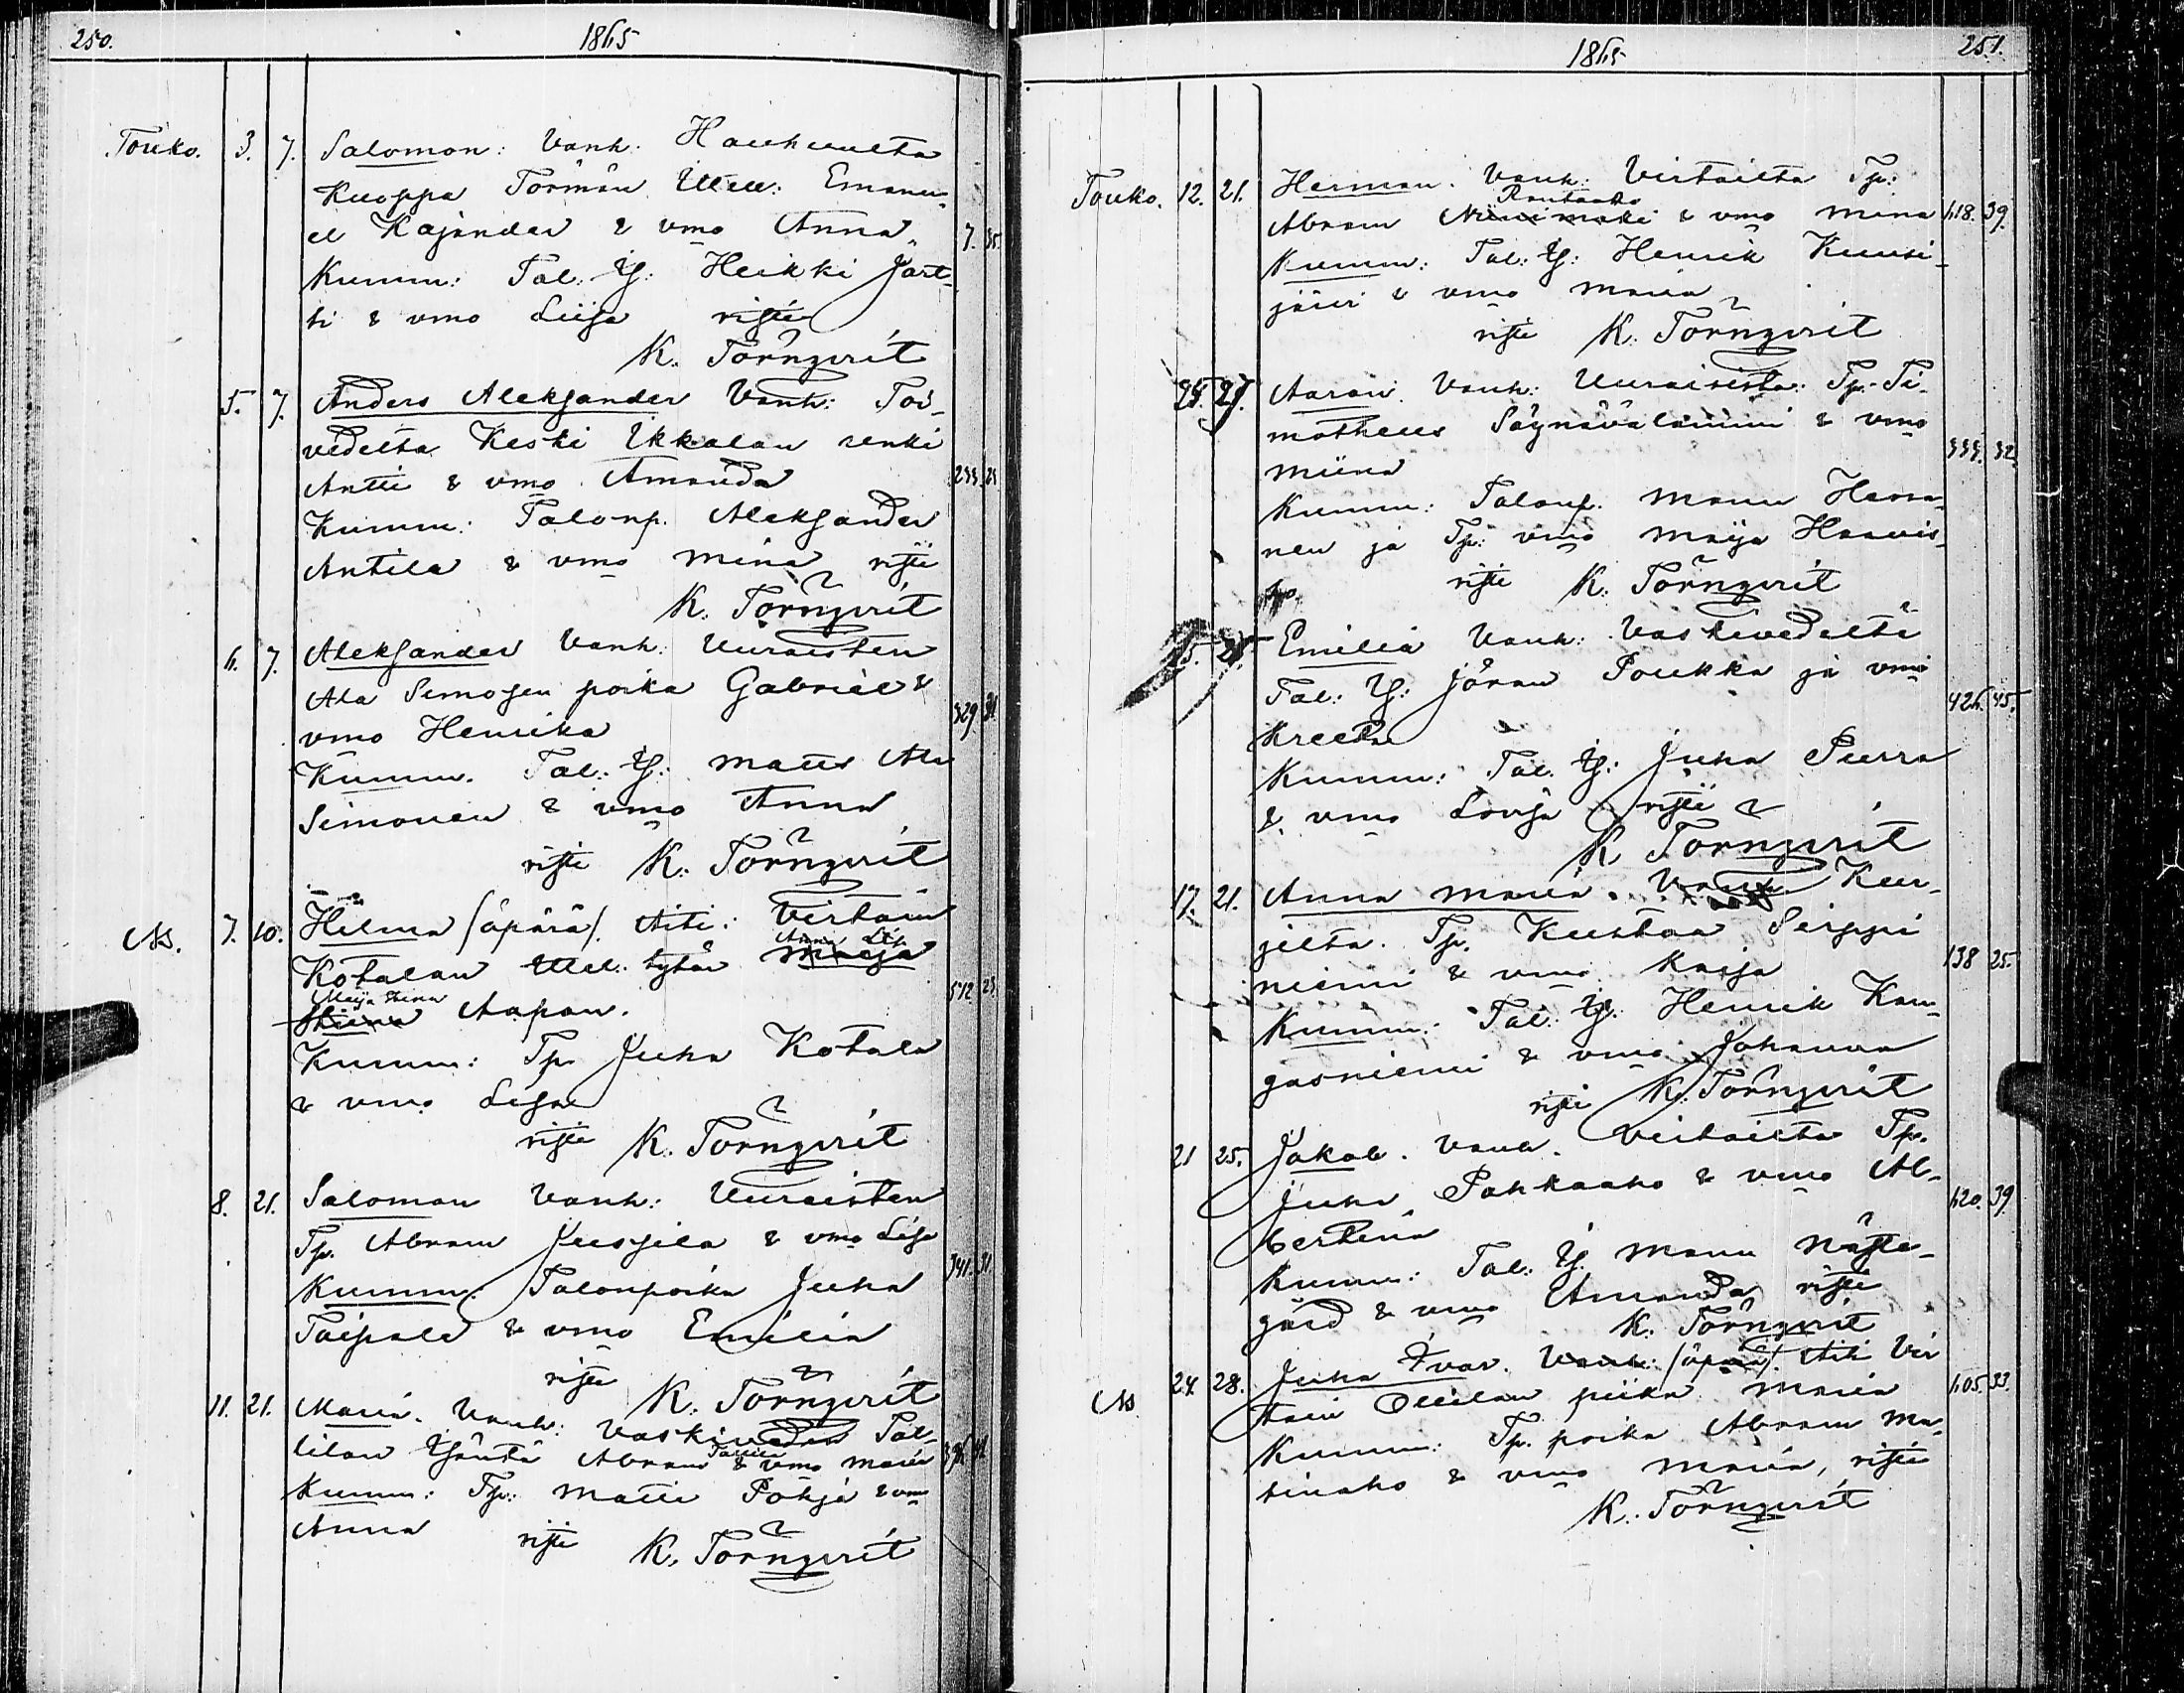 250. 1865
Touko. 3. 7. Salomon: Vanh. Hauhuulta
Kuoppa Törmän Itell: Emanu-
el Kajander & vmo Anna 7. 35.
Kumm: Tal. Is: Heikki Järt-
ti & vmo Liisa risti
K. Törnqvist
5. 7. Anders Aleksander Vanh: Toi-
vedelta Keski Ikkalan renki
Antti & vmo Amanda 233. 25
Kumm: Talonp. Aleksander
Antila & vmo Mina risti
K. Törnqvist
6. 7. Aleksander Vanh. Uuraisten
Ala Simosen poika Gabriel &
vmo Henrika 329. 31.
Kumm. Tal: Is: Matts Ala
Simonen & vmo Anna
risti K. Törnqvist
Ns. 7. 10. Hilma (äpärä). Äiti: Virtain
Kotalan Itell. tytär Maija
Maija Stina
Stiina Aapon. 512 25
Kumm: Tp. Juha Kotala
& vmo Lisa
risti K. Törnqvist
8. 21. Saloman Vanh: Uuraisten
Tp. Abram Juusjila & vmo Lisa
Kumm. Talonpoika Juha 341. 31
Taipale & vmo Emilia
risti K. Törnqvist
11. 21. Maria. Vanh: Vaskiveden Tal-
lilan Isäntä Abram & vmo Maria
Kumm: Tp: Matti Pohja & vmo
Anna risti K. Törnqvist
1865 251.
Touko. 12. 21. Herman. Vanh: Virtailta Tp:
Rantaaho
Abram Niinimäki & vmo Mina 618. 39.
Kumm: Tal: Is: Henrik Kuusi-
järvi & vmo Maria
risti K. Törnqvist
Aaron. Vanh: Uuraisista: Tp. Ti-
motheus Säynävälammi & vmo
Miina 333. 32.
Kumm: Talonp. Manu Hanni-
nen ja Tp: vmo Maija Haavis-
to risti K. Törnqvist
Emilia Vanh: Vaskivedeltä
Tal: Is: Jöran Poukka ja vmo
Kreeta 426. 45.
Kumm: Tal. Is: Juha Purra
& vmo Lovisa risti
K Törnqvist
17. 21. Anna Maria. Vanh Kur-
jelta. Tp. Kustaa Seippi
niemi & vmo Kaisa 138 25.
Kumm: Tal: Is. Henrik Kan-
gasniemi & vmo Johanna
risti K. Törnqvist
21 25. Jakob. Vanh. Virtailta Tp.
Juha Pahkaaho & vmo Al-
bertina 620. 39.
Kumm: Tal: Is. Manu Näste-
gård & vmo Amanda risti
K. Törnqvist
Ns 24. 28. Juha Ivar. Vanh: (äpärä). Äiti Vir
tain Ollilan piika Maria 605. 33.
Kumm: Tp. poika Abram Ma-
tinaho & vmo Maria, risti
K. Törnqvist